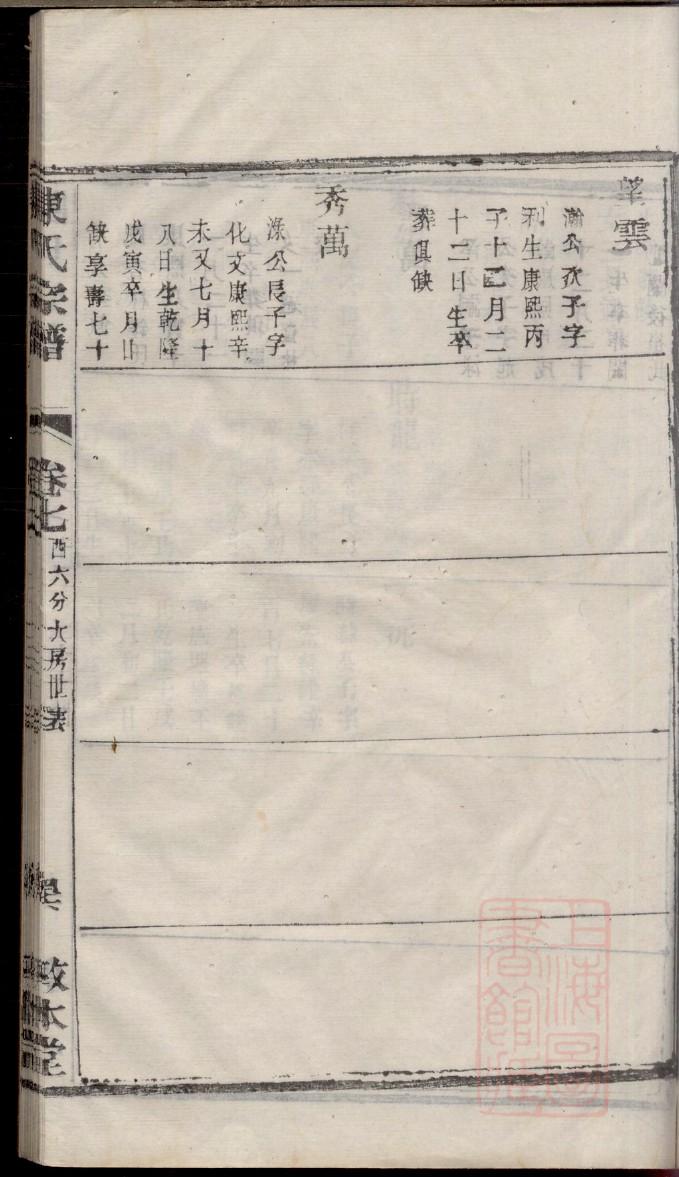 望雲
瀚公次子字
利生康熙丙
子十二月二
十二日生卒
葬俱缺
秀萬
滌公長子字
化文康熙辛
未又七月十
八日生乾隆
戊寅卒月日
缺享壽七十
陳氏宗譜
卷七
西六分大房世表
敬本堂
上海圖
書館藏